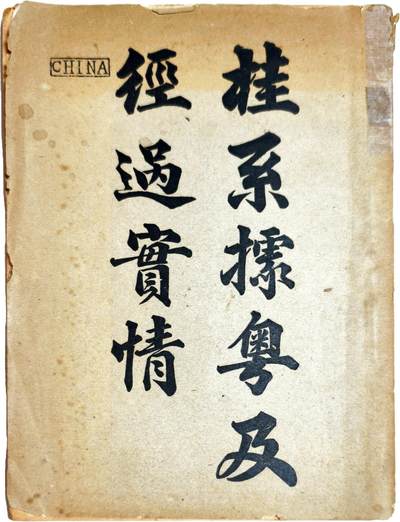 桂系據粤及
經過實情
CHINA